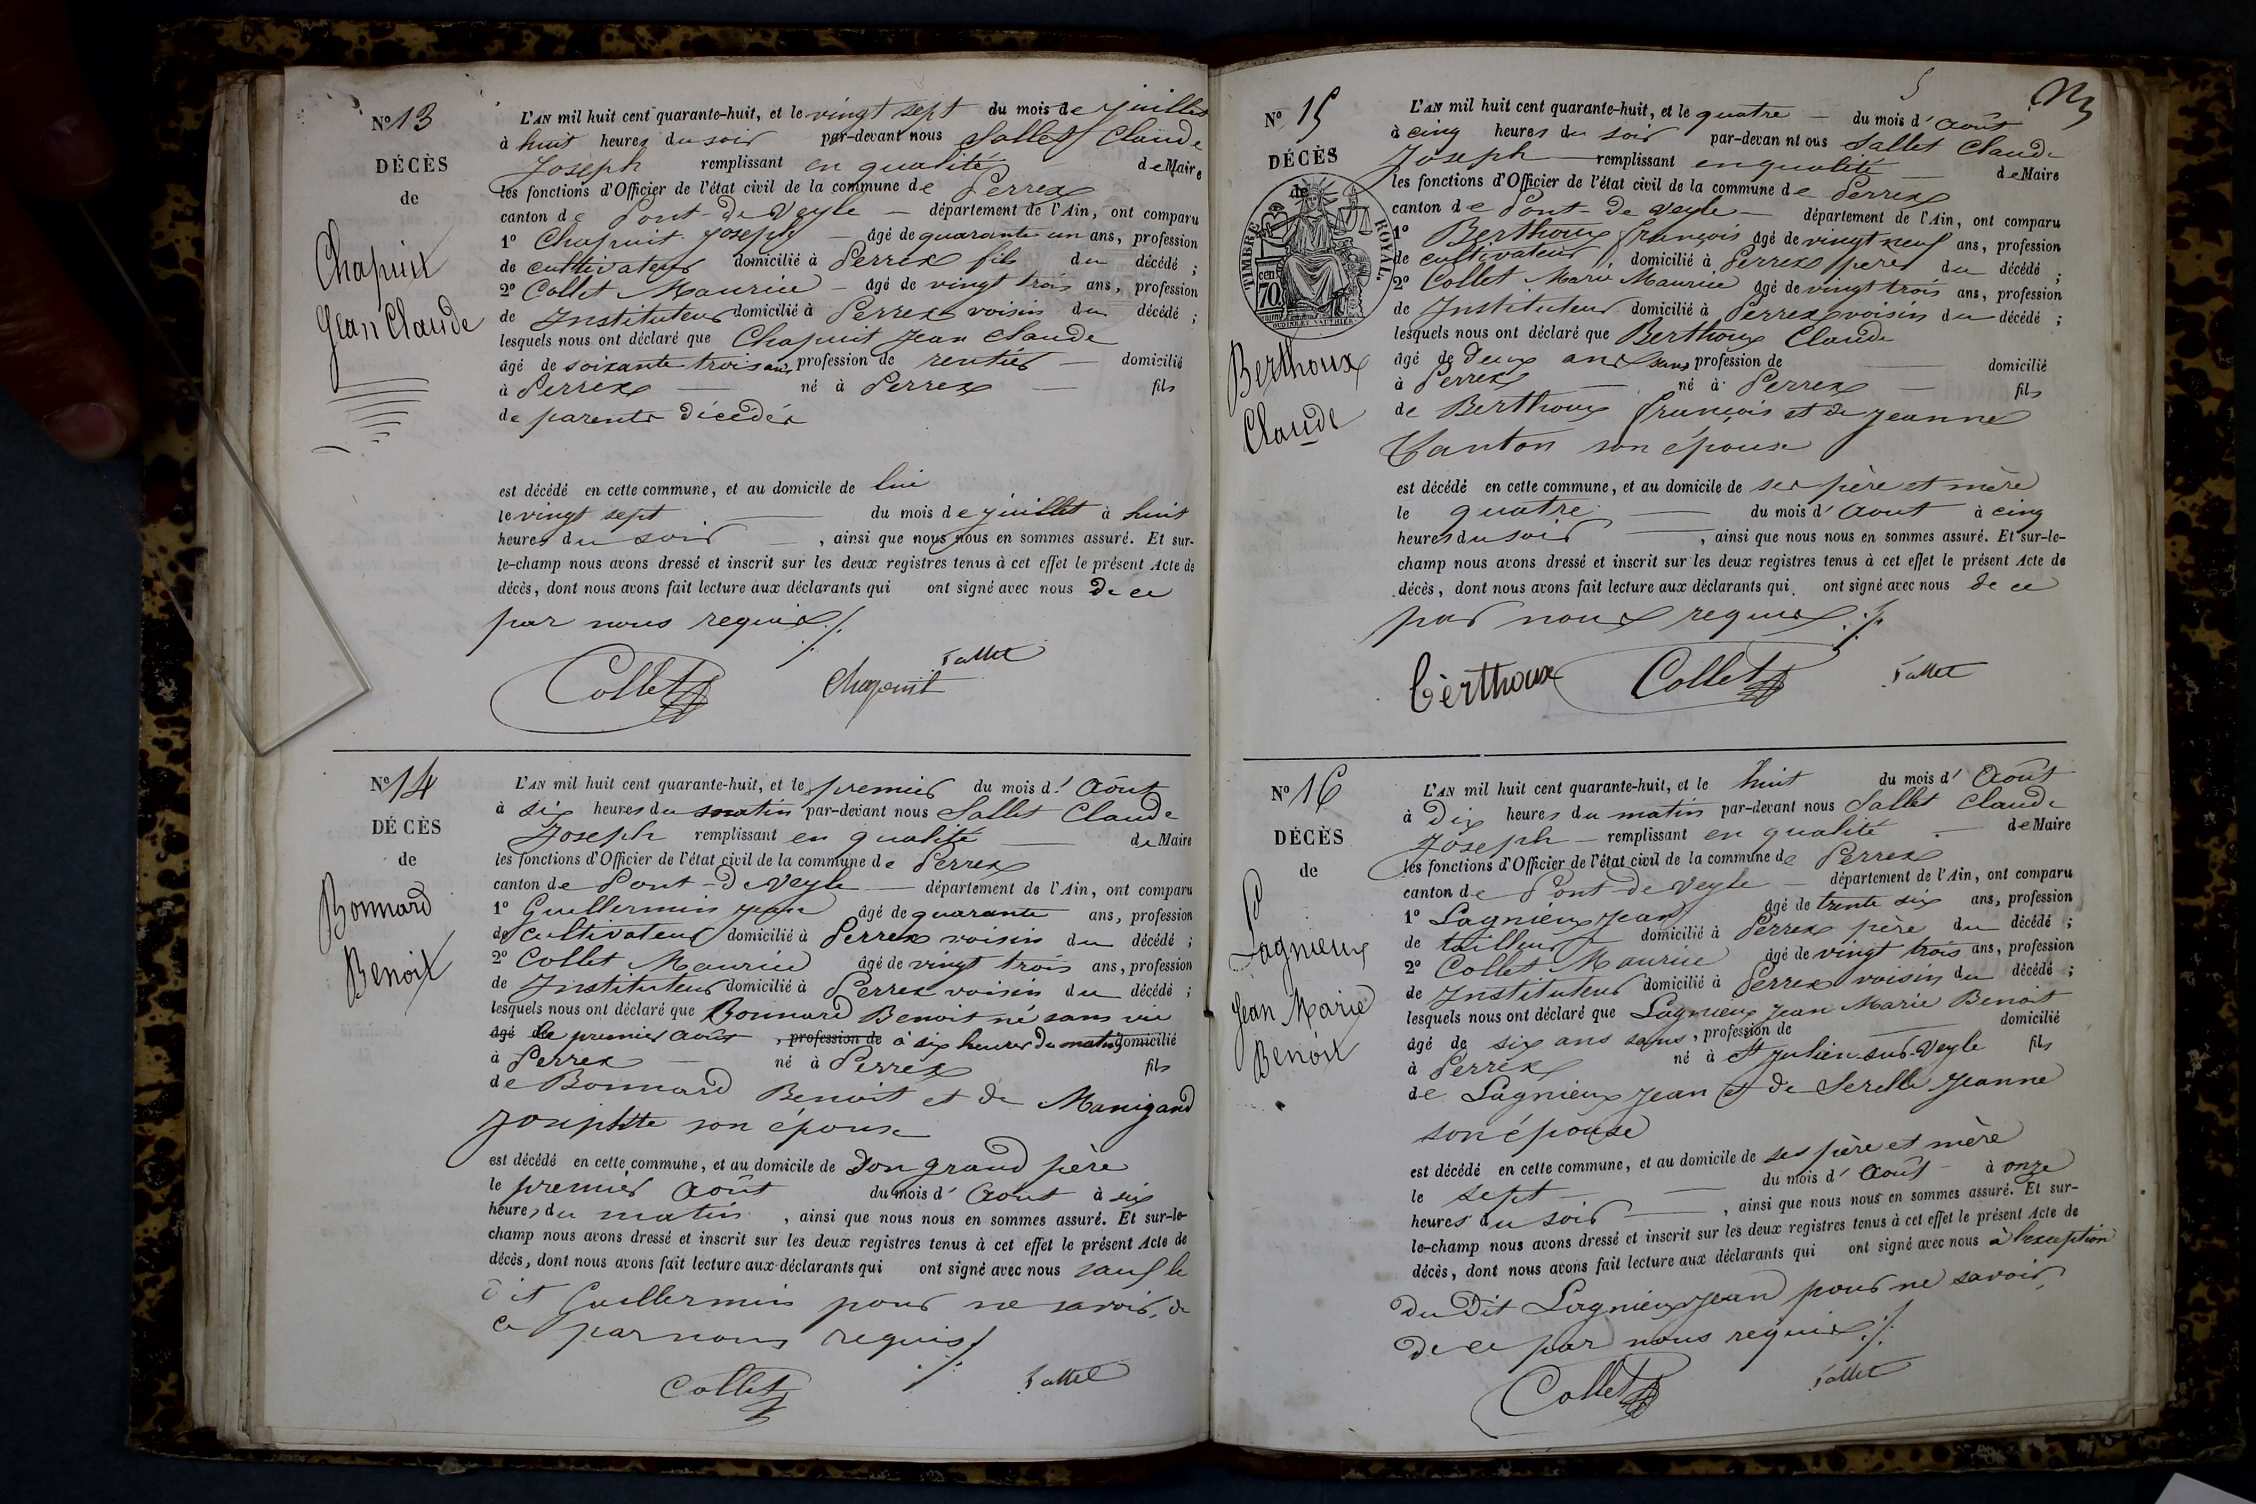 N° 13
DÉCÈS
de
Chapuit
Jean Claude
L'AN mil huit cent quarante-huit, et le vingt sept du mois de juillet
à huit heures du soir par-devant nous Sallet Claude
Joseph remplissant en qualité de Maire
les fonctions d'Officier de l'état civil de la commune de Perrex
canton de Pont-de-Veyle — département de l'Ain, ont comparu
1° Chapuit Joseph — âgé de quarante un ans, profession
de cultivateur domicilié à Perrex fils du décédé ;
2° Collet Maurice — âgé de vingt trois ans, profession
de Instituteur domicilié à Perrex voisin du décédé ;
lesquels nous ont déclaré que Chapuit Jean Claude
âgé de soixante trois ans, profession de rentier — domicilié
à Perrex — né à Perrex — fils
de parents décédés
est décédé en cette commune, et au domicile de lui
le vingt sept — du mois de juillet à huit
heures du soir — , ainsi que nous nous en sommes assuré. Et sur-
le-champ nous avons dressé et inscrit sur les deux registres tenus à cet effet le présent Acte de
décès, dont nous avons fait lecture aux déclarants qui ont signé avec nous de ce
par nous requis ./.
Sallet
Collet Chapuit
N° 14
DÉCÈS
de
Bonnard
Benoit
L'AN mil huit cent quarante-huit, et le premier du mois d'Août
à six heures du matin par-devant nous Sallet Claude
Joseph remplissant en qualité — de Maire
les fonctions d'Officier de l'état civil de la commune de Perrex
canton de Pont-de-Veyle — département de l'Ain, ont comparu
1° Guillermin Jean âgé de quarante ans, profession
de cultivateur domicilié à Perrex voisin du décédé ;
2° Collet Maurice âgé de vingt trois ans, profession
de Instituteur domicilié à Perrex voisin du décédé ;
lesquels nous ont déclaré que Bonnard Benoit né sans vie
âgé de le premier Août , profession de à six heures du matin domicilié
à Perrex — né à Perrex fils
de Bonnard Benoit et de Manigand
Josephte son épouse
est décédé en cette commune, et au domicile de son grand père
le premier Août du mois d'Août à six
heures du matin , ainsi que nous nous en sommes assuré. Et sur-le-
champ nous avons dressé et inscrit sur les deux registres tenus à cet effet le présent Acte de
décès, dont nous avons fait lecture aux déclarants qui ont signé avec nous sauf le
dit Guillermin pour ne savoir, de
ce par nous requis ./.
Collet Sallet
N° 15
DÉCÈS
de
TIMBRE ROYAL.
70 cen
Berthoux
Claude
L'AN mil huit cent quarante-huit, et le quatre — du mois d'Août
à cinq heures du soir par-devan nt ous Sallet Claude
Joseph — remplissant en qualité — de Maire
les fonctions d'Officier de l'état civil de la commune de Perrex
canton de Pont-de-Veyle — département de l'Ain, ont comparu
1° Berthoux françois âgé de vingt neuf ans, profession
de cultivateur, domicilié à Perrex père du décédé ;
2° Collet Marie Maurice âgé de vingt trois ans, profession
de Instituteur domicilié à Perrex voisin du décédé ;
lesquels nous ont déclaré que Berthoux Claude
âgé de deux ans sans profession de — domicilié
à Perrex — né à Perrex — fils
de Berthoux françois et de Jeanne
Canton son épouse
est décédé en cette commune, et au domicile de ses père et mère
le quatre — du mois d'Aout à cinq
heures du soir — , ainsi que nous nous en sommes assuré. Et sur-le-
champ nous avons dressé et inscrit sur les deux registres tenus à cet effet le présent Acte de
décès, dont nous avons fait lecture aux déclarants qui ont signé avec nous de ce
par nous requis ./.
Bèrthoux Collet Sallet
N° 16
DÉCÈS
de
Lagnieux
Jean Marie
Benoit
L'AN mil huit cent quarante-huit, et le huit du mois d'Août
à Dix heures du matin par-devant nous Sallet Claude
Joseph — remplissant en qualité — de Maire
les fonctions d'Officier de l'état civil de la commune de Perrex
canton de Pont-de-Veyle — département de l'Ain, ont comparu
1° Lagnieux Jean âgé de trente six ans, profession
de tailleur domicilié à Perrex père du décédé ;
2° Collet Maurice âgé de vingt trois ans, profession
de Instituteur domicilié à Perrex voisin du décédé ;
lesquels nous ont déclaré que Lagnieux Jean Marie Benoit
âgé de six ans sans, profession de — domicilié
à Perrex né à St Julien-sur-Veyle fils
de Lagnieux Jean et de Serelle Jeanne
son épouse
est décédé en cette commune, et au domicile de ses père et mère
le sept — du mois d'Août — à onze
heures du soir — , ainsi que nous nous en sommes assuré. Et sur-
le-champ nous avons dressé et inscrit sur les deux registres tenus à cet effet le présent Acte de
décès, dont nous avons fait lecture aux déclarants qui ont signé avec nous à l'exception
du Dit Lagnieux Jean pour ne savoir,
de ce par nous requis ./.
Collet Sallet